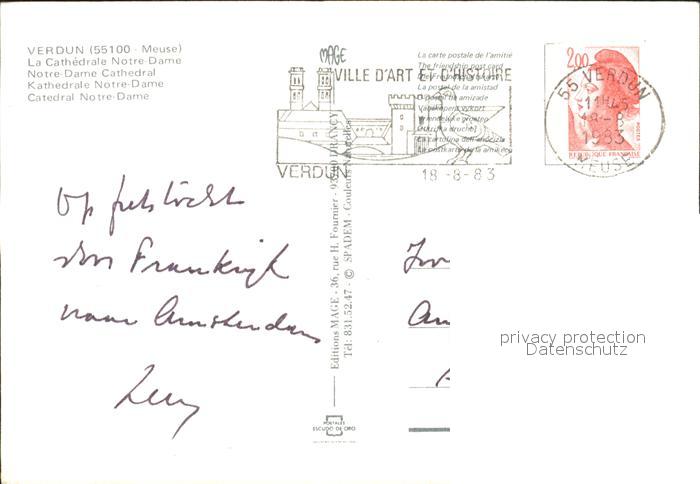 VERDUN (55100 - Meuse)
La Cathédrale Notre-Dame
Notre-Dame Cathedral
Kathedrale Notre-Dame
Catedral Notre-Dame
MAGE
La carte postale de l'amitié
The friendship post card
La postal de la amistad
VILLE D'ART ET D'HISTOIRE
VERDUN
18-8-83
2,00
55 VERDUN
11H45
18-8
1983
MEUSE
POSTES
REPUBLIQUE FRANÇAISE
Op fietstocht
door Frankrijk
naar Amsterdam
Editions MAGE - 36, rue H. Fournier - DRANCY
Tél: 831.52.47 - © SPADEM - Couleurs Naturelles
POSTALES
ESCUDO DE ORO
privacy protection
Datenschutz